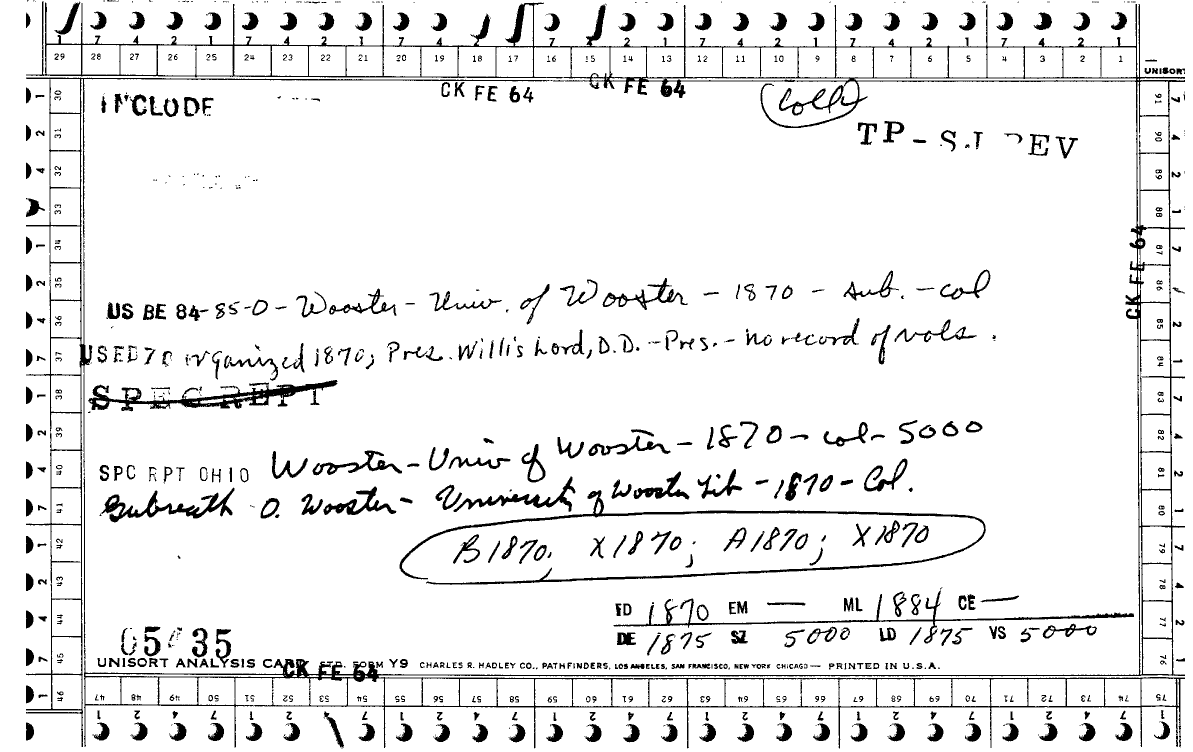 7 4 2 1 7 4 2 1 7 4 2 1 7 4 2 1 7 4 2 1 7 4 2 1 7 4 2 1
29 28 27 26 25 24 23 22 21 20 19 18 17 16 15 14 13 12 11 10 9 8 7 6 5 4 3 2 1
UNISORT
INCLUDE
CK FE 64
CK FE 64
Coll
TP-SJ REV
CK FE 64
US BE 84-85-O-Wooster-Univ. of Wooster - 1870 - sub. - col
USED70 organized 1870; Pres. Willis Lord, D.D. - Pres. - no record of vols.
SPEC REPT
SPC RPT OHIO Wooster-Univ of Wooster-1870-col-5000
Galbreath O. Wooster- University of Wooster Lib - 1870 - Col.
B1870; X1870; A1870; X1870
FD 1870 EM — ML 1884 CE —
DE 1875 SZ 5000 LD 1875 VS 5000
UNISORT ANALYSIS CARD STD. FORM Y9 CHARLES R. HADLEY CO., PATHFINDERS, LOS ANGELES, SAN FRANCISCO, NEW YORK CHICAGO — PRINTED IN U.S.A.
CK FE 64
30 31 32 33 34 35 36 37 38 39 40 41 42 43 44 45 46
91 90 89 88 87 86 85 84 83 82 81 80 79 78 77 76 75
47 48 49 50 51 52 53 54 55 56 57 58 59 60 61 62 63 64 65 66 67 68 69 70 71 72 73 74